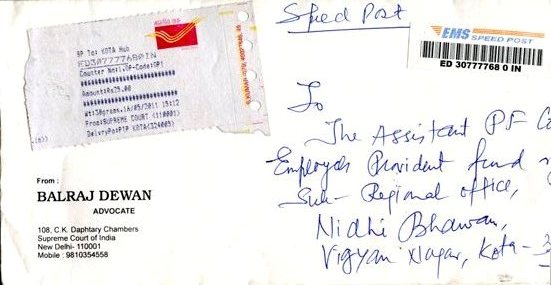 Speed Post
EMS SPEED POST
ED 30777768 0 IN
BP To: KOTA Hub
ED307777680IN
Counter No:1,OP-Code:OP1
Amount:Rs25.00
Wt:30grams,16/05/2011,15:12
From:SUPREME COURT (110001)
DelvryPO:PIP KOTA(324005)
From :
BALRAJ DEWAN
ADVOCATE
108, C.K. Daphtary Chambers
Supreme Court of India
New Delhi- 110001
Mobile : 9810354558
To
The Assistant PF
Employees Provident fund
Sub-Regional office,
Nidhi Bhawan,
Vigyan Nagar, Kota -